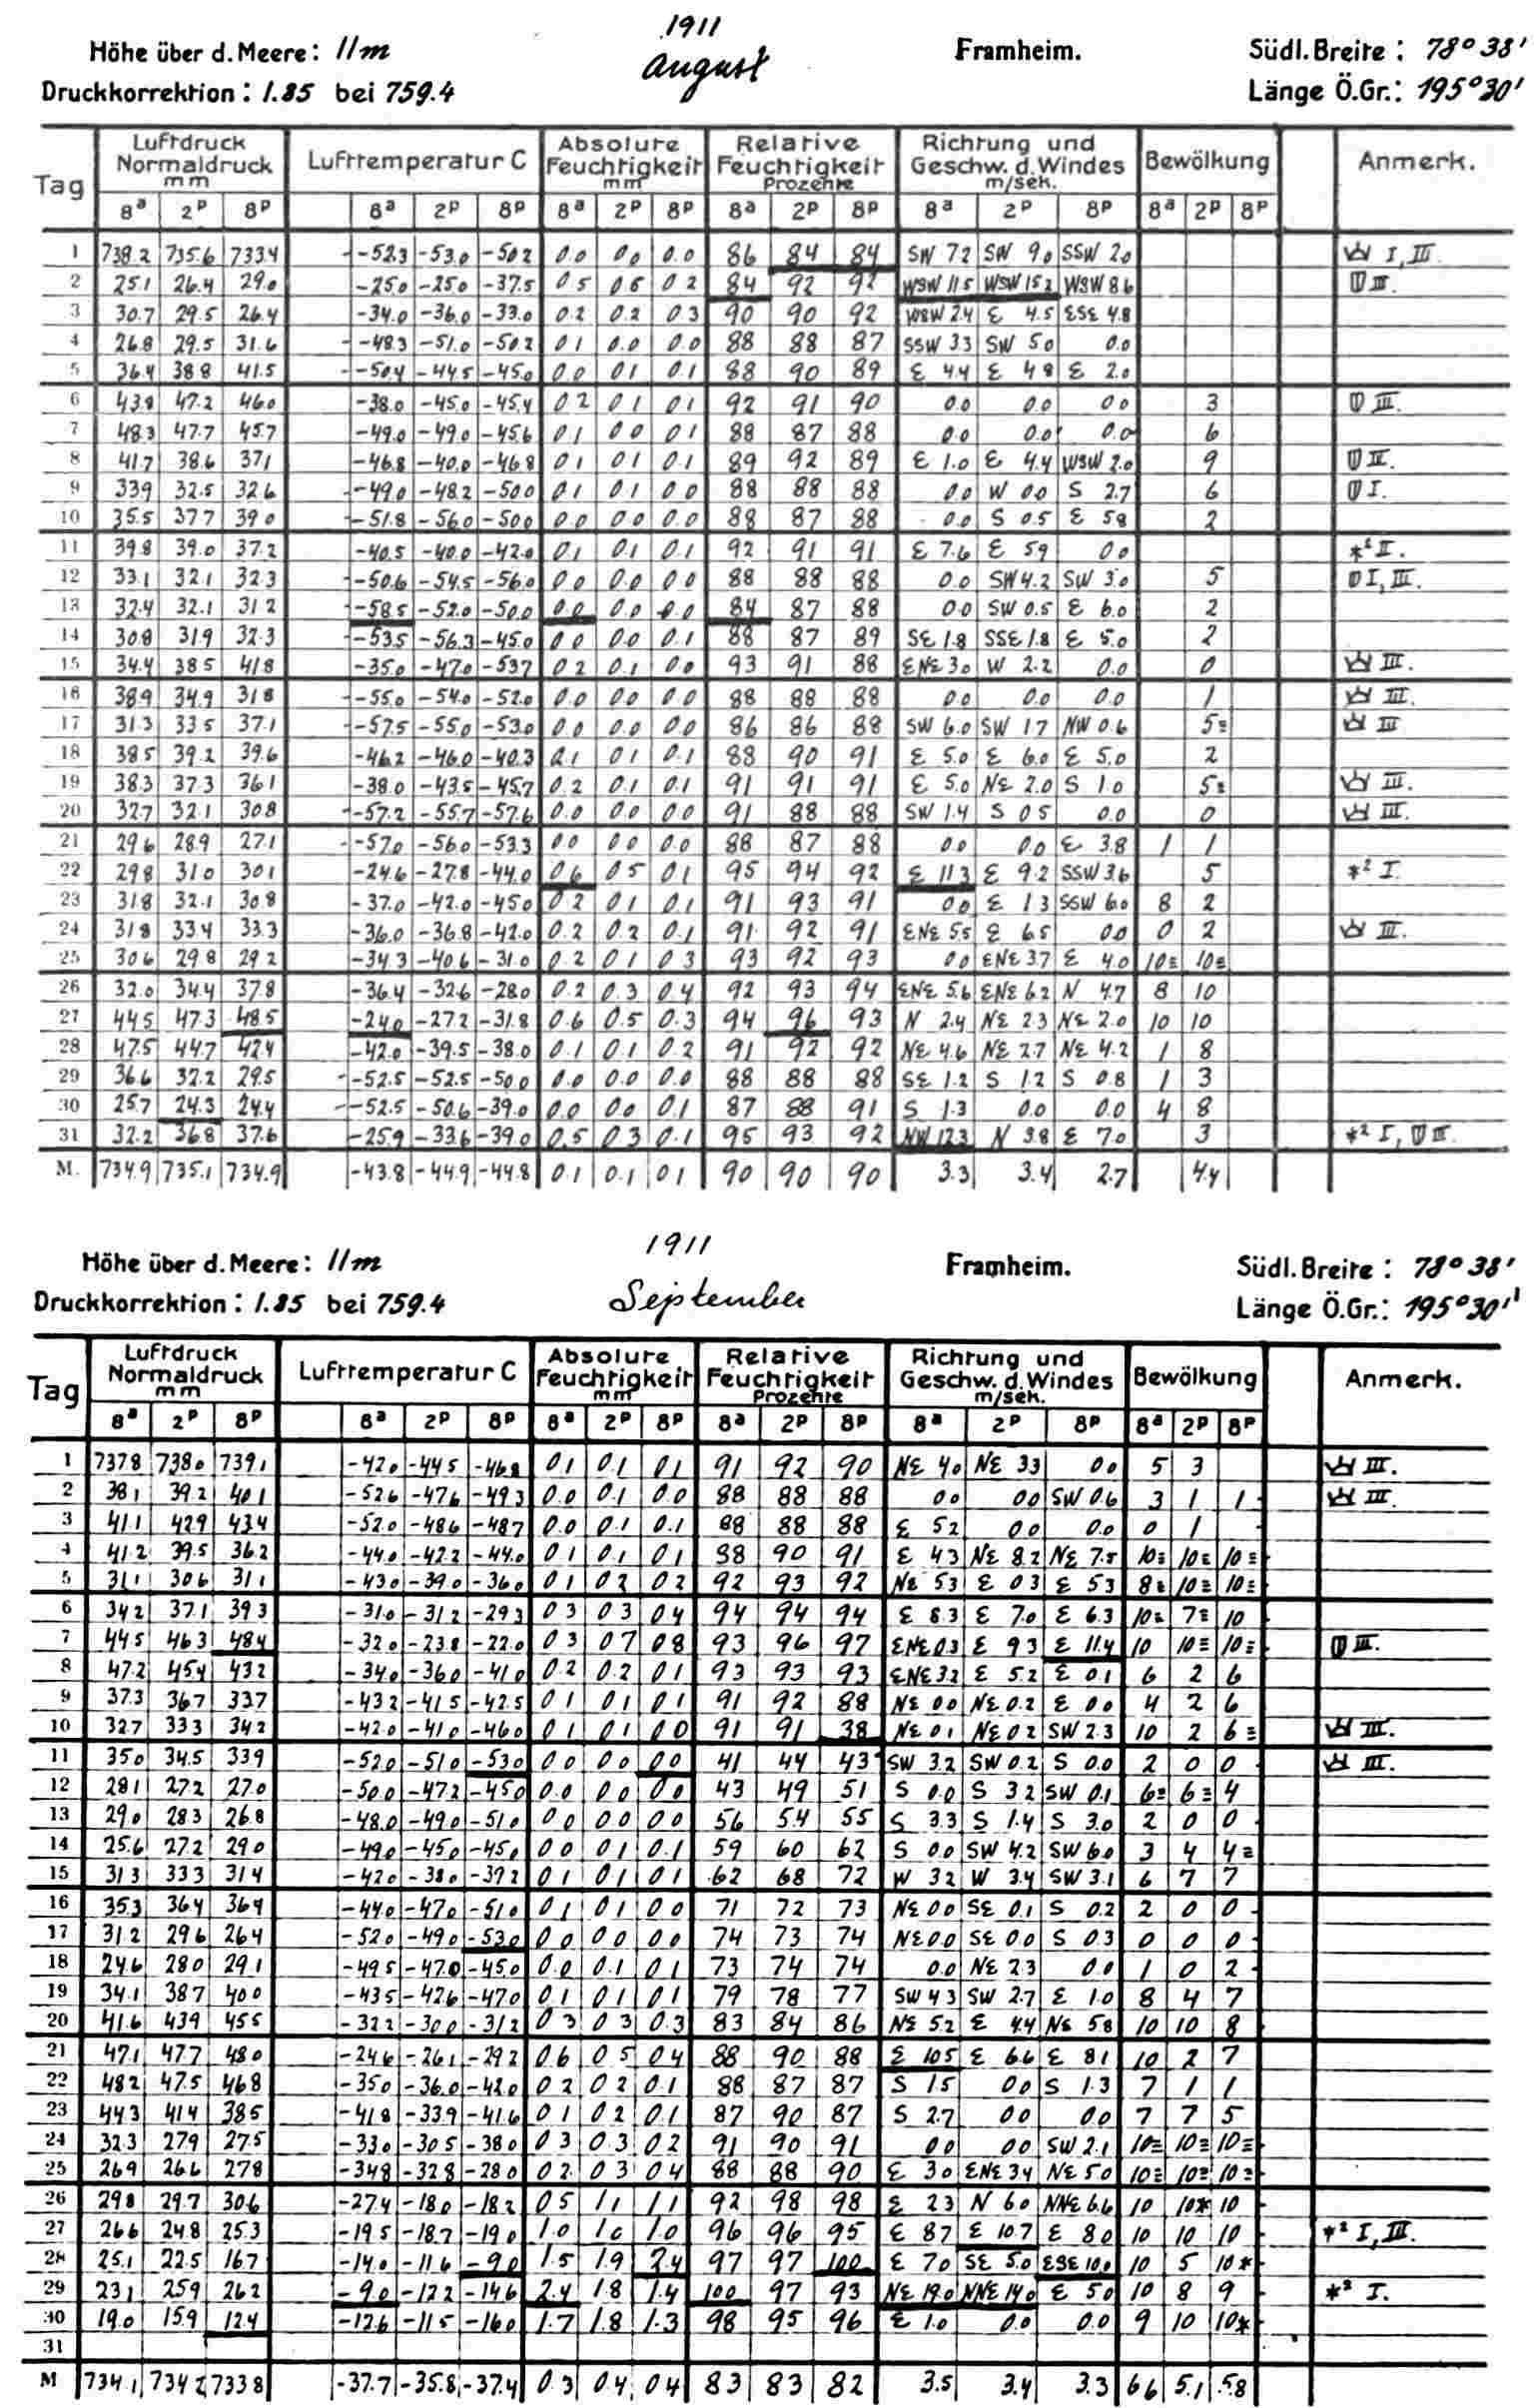 1911
Höhe über d. Meere: 11m August Framheim. Südl. Breite: 78° 38'
Druckkorrektion: 1.85 bei 759.4 Länge Ö.Gr.: 195° 30'
Tag Luftdruck Normaldruck mm Lufttemperatur C Absolute Feuchtigkeit mm Relative Feuchtigkeit Prozente Richtung und Geschw. d. Windes m/sek. Bewölkung Anmerk.
8ª 2ᵖ 8ᵖ 8ª 2ᵖ 8ᵖ 8ª 2ᵖ 8ᵖ 8ª 2ᵖ 8ᵖ 8ª 2ᵖ 8ᵖ 8ª 2ᵖ 8ᵖ
1 738.2 735.6 733.4 -52.3 -53.0 -50.2 0.0 0.0 0.0 86 84 84 SW 7.2 SW 9.0 SSW 2.0 I, III.
2 25.1 26.4 29.0 -25.0 -25.0 -37.5 0.5 0.5 0.2 84 92 92 WSW 11.5 WSW 15.2 WSW 8.6 III.
3 30.7 29.5 26.4 -34.0 -36.0 -33.0 0.2 0.2 0.3 90 90 92 WSW 2.4 E 4.5 ESE 4.8
4 26.8 29.5 31.6 -48.3 -51.0 -50.2 0.1 0.0 0.0 88 88 87 SSW 3.3 SW 5.0 0.0
5 36.4 38.8 41.5 -50.4 -44.5 -45.0 0.0 0.1 0.1 88 90 89 E 4.4 E 4.8 E 2.0
6 43.8 47.2 46.0 -38.0 -45.0 -45.4 0.2 0.1 0.1 92 91 90 0.0 0.0 0.0 3 III.
7 48.3 47.7 45.7 -49.0 -49.0 -45.6 0.1 0.0 0.1 88 87 88 0.0 0.0 0.0 6
8 41.7 38.6 37.1 -46.8 -40.0 -46.8 0.1 0.1 0.1 89 92 89 E 1.0 E 4.4 WSW 2.0 9 II.
9 33.9 32.5 32.6 -49.0 -48.2 -50.0 0.1 0.1 0.0 88 88 88 0.0 W 0.0 S 2.7 6 I.
10 35.5 37.7 39.0 -51.8 -56.0 -50.0 0.0 0.0 0.0 88 87 88 0.0 S 0.5 E 5.8 2
11 39.8 39.0 37.2 -40.5 -40.0 -42.0 0.1 0.1 0.1 92 91 91 E 7.6 E 5.9 0.0 *² II.
12 33.1 32.1 32.3 -50.6 -54.5 -56.0 0.0 0.0 0.0 88 88 88 0.0 SW 4.2 SW 3.0 5 I, III.
13 32.4 32.1 31.2 -58.5 -52.0 -50.0 0.0 0.0 0.0 84 87 88 0.0 SW 0.5 E 6.0 2
14 30.8 31.9 32.3 -53.5 -56.3 -45.0 0.0 0.0 0.1 88 87 89 SE 1.8 SSE 1.8 E 5.0 2
15 34.4 38.5 41.8 -35.0 -47.0 -53.7 0.2 0.1 0.0 93 91 88 ENE 3.0 W 2.2 0.0 0 III.
16 38.9 34.9 31.8 -55.0 -54.0 -52.0 0.0 0.0 0.0 88 88 88 0.0 0.0 0.0 1 III.
17 31.3 33.5 37.1 -57.5 -55.0 -53.0 0.0 0.0 0.0 86 86 88 SW 6.0 SW 1.7 NW 0.6 5≡ III
18 38.5 39.2 39.6 -46.2 -46.0 -40.3 0.1 0.1 0.1 88 90 91 E 5.0 E 6.0 E 5.0 2
19 38.3 37.3 36.1 -38.0 -43.5 -45.7 0.2 0.1 0.1 91 91 91 E 5.0 NE 2.0 S 1.0 5≡ III.
20 32.7 32.1 30.8 -57.2 -55.7 -57.6 0.0 0.0 0.0 91 88 88 SW 1.4 S 0.5 0.0 0 III.
21 29.6 28.9 27.1 -57.0 -56.0 -53.3 0.0 0.0 0.0 88 87 88 0.0 0.0 E 3.8 1 1
22 29.8 31.0 30.1 -24.6 -27.8 -44.0 0.6 0.5 0.1 95 94 92 E 11.3 E 9.2 SSW 3.6 5 *² I.
23 31.8 32.1 30.8 -37.0 -42.0 -45.0 0.2 0.1 0.1 91 93 91 0.0 E 1.3 SSW 6.0 8 2
24 31.8 33.4 33.3 -36.0 -36.8 -42.0 0.2 0.2 0.1 91 92 91 ENE 5.5 E 6.5 0.0 0 2 III.
25 30.6 29.8 29.2 -34.3 -40.6 -31.0 0.2 0.1 0.3 93 92 93 0.0 ENE 3.7 E 4.0 10≡ 10≡
26 32.0 34.4 37.8 -36.4 -32.6 -28.0 0.2 0.3 0.4 92 93 94 ENE 5.6 ENE 6.2 N 4.7 8 10
27 44.5 47.3 48.5 -24.0 -27.2 -31.8 0.6 0.5 0.3 94 96 93 N 2.4 NE 2.3 NE 2.0 10 10
28 47.5 44.7 42.4 -42.0 -39.5 -38.0 0.1 0.1 0.2 91 92 92 NE 4.6 NE 2.7 NE 4.2 1 8
29 36.6 32.2 29.5 -52.5 -52.5 -50.0 0.0 0.0 0.0 88 88 88 SE 1.2 S 1.2 S 0.8 1 3
30 25.7 24.3 24.4 -52.5 -50.6 -39.0 0.0 0.0 0.1 87 88 91 S 1.3 0.0 0.0 4 8
31 32.2 36.8 37.6 -25.9 -33.6 -39.0 0.5 0.3 0.1 95 93 92 NW 12.3 N 3.8 E 7.0 3 *² I, III.
M. 734.9 735.1 734.9 -43.8 -44.9 -44.8 0.1 0.1 0.1 90 90 90 3.3 3.4 2.7 4.4
1911
Höhe über d. Meere: 11m September Framheim. Südl. Breite: 78° 38'
Druckkorrektion: 1.85 bei 759.4 Länge Ö.Gr.: 195° 30'
Tag Luftdruck Normaldruck mm Lufttemperatur C Absolute Feuchtigkeit mm Relative Feuchtigkeit Prozente Richtung und Geschw. d. Windes m/sek. Bewölkung Anmerk.
8ª 2ᵖ 8ᵖ 8ª 2ᵖ 8ᵖ 8ª 2ᵖ 8ᵖ 8ª 2ᵖ 8ᵖ 8ª 2ᵖ 8ᵖ 8ª 2ᵖ 8ᵖ
1 737.8 738.0 739.1 -42.0 -44.5 -46.8 0.1 0.1 0.1 91 92 90 NE 4.0 NE 3.3 0.0 5 3 III.
2 38.1 39.2 40.1 -52.6 -47.6 -49.3 0.0 0.1 0.0 88 88 88 0.0 0.0 SW 0.6 3 1 1 III.
3 41.1 42.9 43.4 -52.0 -48.6 -48.7 0.0 0.1 0.1 88 88 88 E 5.2 0.0 0.0 0 1
4 41.2 39.5 36.2 -44.0 -42.2 -44.0 0.1 0.1 0.1 88 90 91 E 4.3 NE 8.2 NE 7.5 10≡ 10≡ 10≡
5 31.1 30.6 31.1 -43.0 -39.0 -36.0 0.1 0.2 0.2 92 93 92 NE 5.3 E 0.3 E 5.3 8≡ 10≡ 10≡
6 34.2 37.1 39.3 -31.0 -31.2 -29.3 0.3 0.3 0.4 94 94 94 E 8.3 E 7.0 E 6.3 10≡ 7≡ 10
7 44.5 46.3 48.4 -32.0 -23.8 -22.0 0.3 0.7 0.8 93 96 97 ENE 0.3 E 9.3 E 11.4 10 10≡ 10≡ III.
8 47.2 45.4 43.2 -34.0 -36.0 -41.0 0.2 0.2 0.1 93 93 93 ENE 3.2 E 5.2 E 0.1 6 2 6
9 37.3 36.7 33.7 -43.2 -41.5 -42.5 0.1 0.1 0.1 91 92 88 NE 0.0 NE 0.2 E 0.0 4 2 6
10 32.7 33.3 34.2 -42.0 -41.0 -46.0 0.1 0.1 0.0 91 91 38 NE 0.1 NE 0.2 SW 2.3 10 2 6≡ III.
11 35.0 34.5 33.9 -52.0 -51.0 -53.0 0.0 0.0 0.0 41 44 43 SW 3.2 SW 0.2 S 0.0 2 0 0 III.
12 28.1 27.2 27.0 -50.0 -47.2 -45.0 0.0 0.0 0.0 43 49 51 S 0.0 S 3.2 SW 0.1 6≡ 6≡ 4
13 29.0 28.3 26.8 -48.0 -49.0 -51.0 0.0 0.0 0.0 56 54 55 S 3.3 S 1.4 S 3.0 2 0 0
14 25.6 27.2 29.0 -49.0 -45.0 -45.0 0.0 0.1 0.1 59 60 62 S 0.0 SW 4.2 SW 6.0 3 4 4≡
15 31.3 33.3 31.4 -42.0 -38.0 -39.2 0.1 0.1 0.1 62 68 72 W 3.2 W 3.4 SW 3.1 6 7 7
16 35.3 36.4 36.9 -44.0 -47.0 -51.0 0.1 0.1 0.0 71 72 73 NE 0.0 SE 0.1 S 0.2 2 0 0
17 31.2 29.6 26.4 -52.0 -49.0 -53.0 0.0 0.0 0.0 74 73 74 NE 0.0 SE 0.0 S 0.3 0 0 0
18 24.6 28.0 29.1 -49.5 -47.0 -45.0 0.0 0.1 0.1 73 74 74 0.0 NE 2.3 0.0 1 0 2
19 34.1 38.7 40.0 -43.5 -42.6 -47.0 0.1 0.1 0.1 79 78 77 SW 4.3 SW 2.7 E 1.0 8 4 7
20 41.6 43.9 45.5 -32.2 -30.0 -31.2 0.3 0.3 0.3 83 84 86 NE 5.2 E 4.4 NE 5.8 10 10 8
21 47.1 47.7 48.0 -24.6 -26.1 -29.2 0.6 0.5 0.4 88 90 88 E 10.5 E 6.6 E 8.1 10 2 7
22 48.2 47.5 46.8 -35.0 -36.0 -42.0 0.2 0.2 0.1 88 87 87 S 1.5 0.0 S 1.3 7 1 1
23 44.3 41.4 38.5 -41.8 -33.9 -41.6 0.1 0.2 0.1 87 90 87 S 2.7 0.0 0.0 7 7 5
24 32.3 27.9 27.5 -33.0 -30.5 -38.0 0.3 0.3 0.2 91 90 91 0.0 0.0 SW 2.1 10≡ 10≡ 10≡
25 26.9 26.6 27.8 -34.8 -32.8 -28.0 0.2 0.3 0.4 88 88 90 E 3.0 ENE 3.4 NE 5.0 10≡ 10≡ 10≡
26 29.8 29.7 30.6 -27.4 -18.0 -18.2 0.5 1.1 1.1 92 98 98 E 2.3 N 6.0 NNE 6.6 10 10* 10
27 26.6 24.8 25.3 -19.5 -18.7 -19.0 1.0 1.0 1.0 96 96 95 E 8.7 E 10.7 E 8.0 10 10 10 *² I, III.
28 25.1 22.5 16.7 -14.0 -11.6 -9.0 1.5 1.9 2.4 97 97 100 E 7.0 SE 5.0 ESE 10.0 10 5 10*
29 23.1 25.9 26.2 -9.0 -12.2 -14.6 2.4 1.8 1.4 100 97 93 NE 19.0 NNE 14.0 E 5.0 10 8 9 *² I.
30 19.0 15.9 12.4 -12.6 -11.5 -16.0 1.7 1.8 1.3 98 95 96 E 1.0 0.0 0.0 9 10 10*
31
M 734.1 734.2 733.8 -37.7 -35.8 -37.4 0.3 0.4 0.4 83 83 82 3.5 3.4 3.3 6.6 5.1 5.8